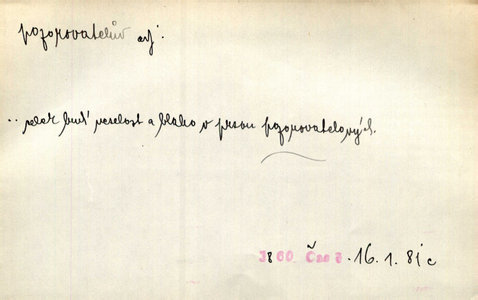 pozorovatelův adj.
.. zdař buď veselost a blaho v prsou pozorovatelových.
1860 Čas 7. 16. 1. 8/c